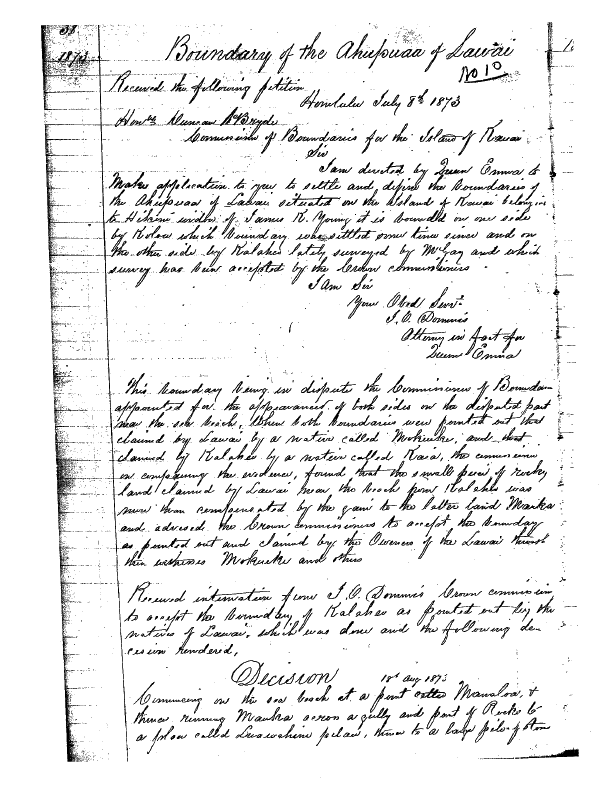 38
1873
Boundary of the Ahupuaa of Lawai
No 10
Received the following petition
Honolulu July 8th 1873
Honble Duncan McBryde
Commissioner of Boundaries for the Island of Kauai
Sir
I am directed by Queen Emma to
make application to you to settle and define the boundaries of
the Ahupuaa of Lawai situated on the Island of Kauai belonging
to Hikoni widow of James K. Young it is bounded on one side
by Koloa which boundary was settled some time since and on
the other side by Kalaheo lately surveyed by McGay and which
survey has been accepted by the Crown commissioners
I Am Sir
Your Obed Servt
J. O. Dominis
Attorney in fact for
Queen Emma
This boundary being in dispute the Commissioner of Boundaries
appointed for the appearance of both sides on the disputed part
near the sea beach, when both boundaries were pointed out that
claimed by Lawai by a native called Mokuike, and that
claimed by Kalaheo by a native called Kaea, the commissioner
on comparing the evidence, found that the small piece of rocky
land claimed by Lawai near the beach from Kalaheo was
more than compensated by the gain to the latter land Mauka
and advised the Crown commissioners to accept the boundary
as pointed out and claimed by the Owners of the Lawai through
their witnesses Mokuike and others
Received intimation from J. O. Dominis Crown commissioner
to accept the boundary of Kalaheo as pointed out by the
natives of Lawai, which was done and the following de-
cision rendered,
Decision 18th Aug 1873
Commencing on the sea beach at a point called Manaloa, &
thence running Mauka across a gully and point of Rocks to
a place called Luawahine pelau, thence to a large pile of stone